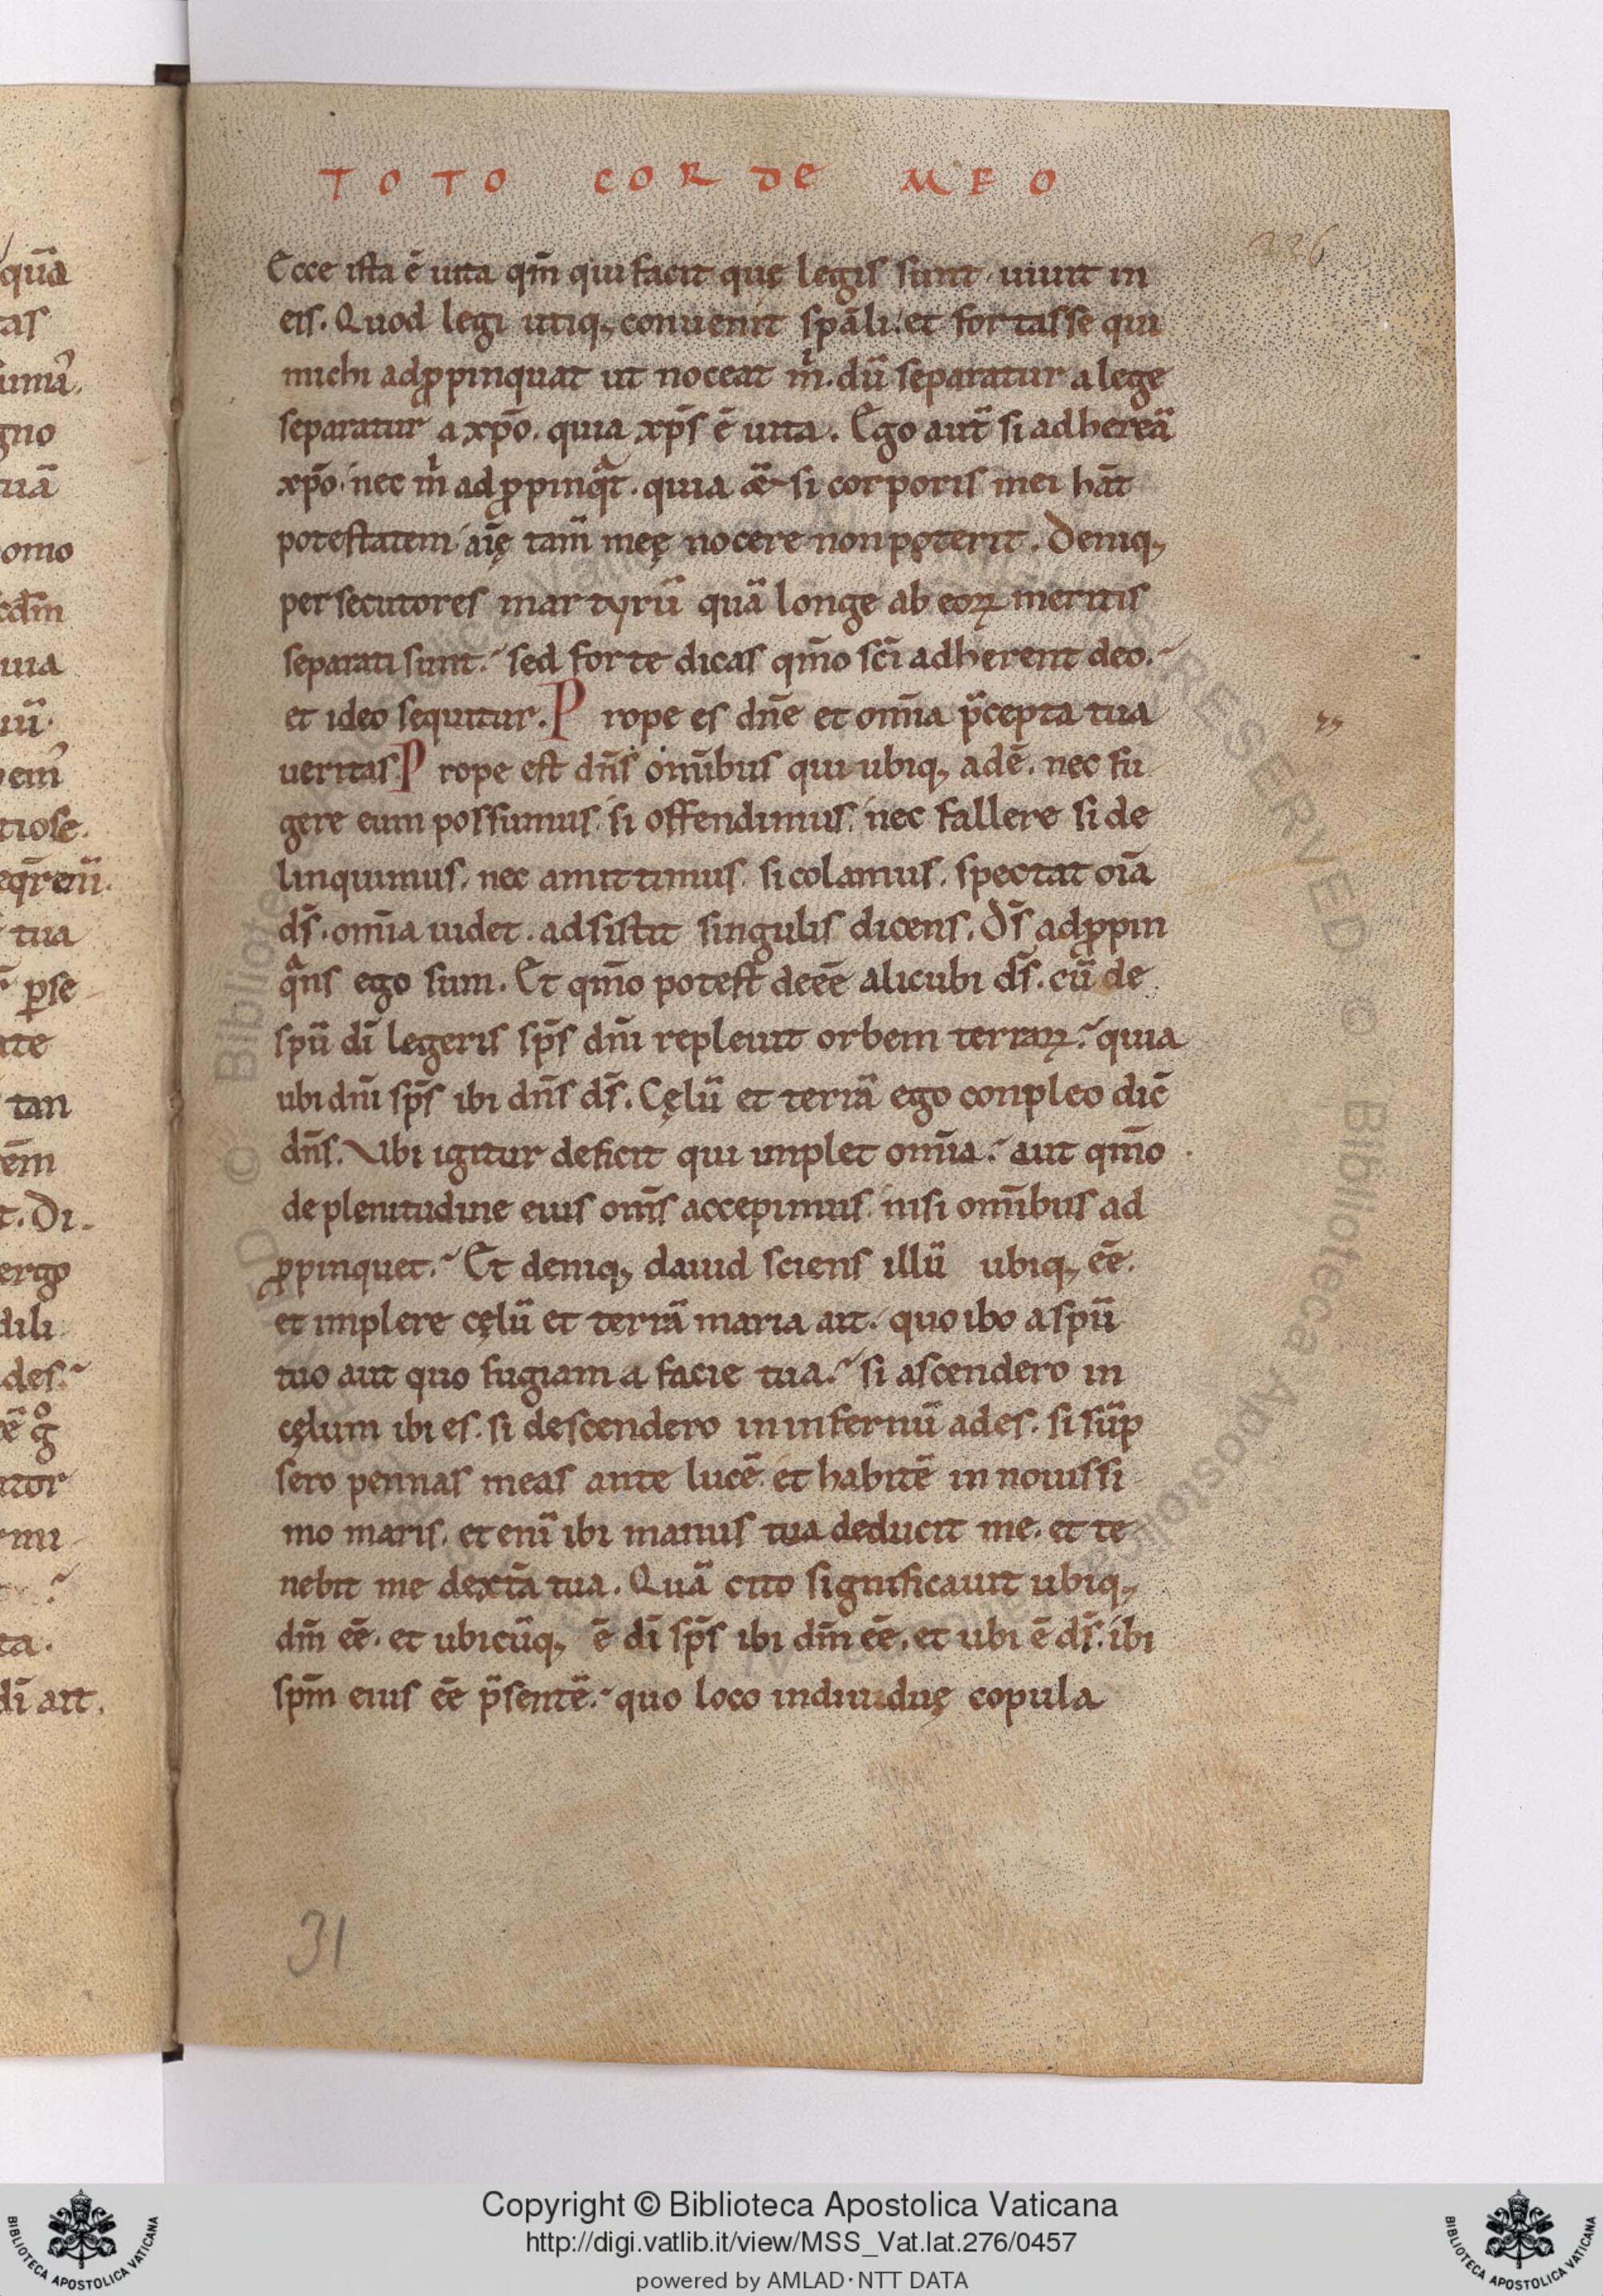 TOTO CORDE MEO
226
Ecce ista ē uita qm̄ qui facit quę legis sunt . uiuit in
eis . Quod legi utiq; conuenit spāli . et fortasse qui
michi adꝓpinquat ut noceat m̄ . dū separatur a lege
separatur a xp̄o . quia xp̄s ē uita . Ego aut̄ si adhereā
xp̄o . nec m̄ adꝓpinqͣt . quia &si corporis mei hāt
potestatem aīę tam̄ meę nocere non poterit . Deniq;
persecutores martyrū quā longe ab eoꝝ meritis
separati sunt . sed forte dicas qm̄o sc̄i adherent deo .
et ideo sequitur . Prope es dn̄e et om̄ia p̄cepta tua
ueritas Prope est dn̄s om̄ibus qui ubiq; adē . nec fu
gere eum possumus . si offendimus . nec fallere si de
linquimus . nec amittimus . si colamus . spectat oīa
ds̄ . om̄ia uidet . adsistit singulis dicens . Ds̄ adꝓpin
qͣns ego sum . Et qm̄o potest deēē alicubi ds̄ . cū de
spū dī legeris sp̄s dn̄i repleuit orbem terraꝝ . quia
ubi dn̄i sp̄s ibi dn̄s ds̄ . Cęlū et terrā ego conpleo dic̄
dn̄s . Vbi igitur deficit qui implet om̄ia . aut qm̄o
de plenitudine eius om̄s accepimus . nisi om̄ibus ad
ꝓpinquet . Et deniq; dauid sciens illū ubiq; ēē .
et implere cęlū et terrā maria ait . quo ibo a spū
tuo aut quo fugiam a facie tua . si ascendero in
cęlum ibi es . si descendero in infernū ades . si sūp
sero pennas meas ante lucē . et habitē in nouissi
mo maris . et eni ̄ ibi manus tua deducit me . et te
nebit me dext̄a tua . Quā cito significauit ubiq;
dm̄ ēē . et ubicūq; ē dī sp̄s ibi dm̄ ēē . et ubi ē ds̄ . ibi
spm̄ eius ēē p̄sentē . quo loco indiuiduę copula
31
Copyright © Biblioteca Apostolica Vaticana
http://digi.vatlib.it/view/MSS_Vat.lat.276/0457
powered by AMLAD·NTT DATA